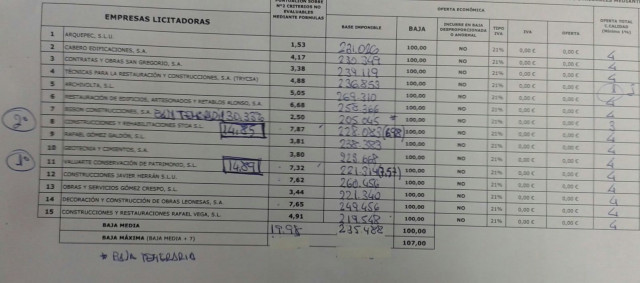 EMPRESAS LICITADORAS
PUNTUACIÓN SOBRE Nº1 CRITERIOS NO EVALUABLES MEDIANTE FORMULAS
OFERTA ECONÓMICA
BASE IMPONIBLE BAJA INCURRE EN BAJA DESPROPORCIONADA O ANORMAL TIPO IVA IVA OFERTA OFERTA TOTAL
1 ARQUEPEC, S.L.U. 1,53 100,00 NO 21% 0,00 € 0,00 € 4
2 CABERO EDIFICACIONES, S.A. 4,17 230.349 100,00 NO 21% 0,00 € 0,00 € 4
3 CONTRATAS Y OBRAS SAN GREGORIO, S.A. 3,38 239.119 100,00 NO 21% 0,00 € 0,00 € 4
4 TÉCNICAS PARA LA RESTAURACIÓN Y CONSTRUCCIONES, S.A. (TRYCSA) 4,88 236.853 100,00 NO 21% 0,00 € 0,00 € 4
5 ARCHIVOLTA, S.L. 5,05 269.310 100,00 NO 21% 0,00 € 0,00 €
6 RESTAURACIÓN DE EDIFICIOS, ARTESONADOS Y RETABLOS ALONSO, S.A. 6,68 100,00 NO 21% 0,00 € 0,00 € 4
7 BAJA TEMERARIA 2,50 205.045 100,00 NO 21% 0,00 € 0,00 € 4
2º 8 CONSTRUCCIONES Y REHABILITACIONES S.L. 14.85 7,87 100,00 NO 21% 0,00 € 0,00 €
9 RAFAEL GÓMEZ GALDÓN, S.L. 3,81 238.383 100,00 NO 21% 0,00 € 0,00 € 4
10 GEOTECNIA Y CIMIENTOS, S.A. 3,80 100,00 NO 21% 0,00 € 0,00 € 4
1º 11 VALUARTE CONSERVACIÓN DE PATRIMONIO, S.L. 14.89 7,32 100,00 NO 21% 0,00 € 0,00 € 4
12 CONSTRUCCIONES JAVIER HERRÁN S.L.U. 7,62 260.656 100,00 NO 21% 0,00 € 0,00 € 4
13 OBRAS Y SERVICIOS GÓMEZ CRESPO, S.L. 3,44 221.340 100,00 NO 21% 0,00 € 0,00 € 4
14 DECORACIÓN Y CONSTRUCCIÓN DE OBRAS LEONESAS, S.A. 7,65 249.456 100,00 NO 21% 0,00 € 0,00 € 4
15 CONSTRUCCIONES Y RESTAURACIONES RAFAEL VEGA, S.L. 4,91 219.548 100,00 NO 21% 0,00 € 0,00 € 4
BAJA MEDIA 235.488 100,00
BAJA MÁXIMA (BAJA MEDIA + 7) 107,00
* BAJA TEMERARIA